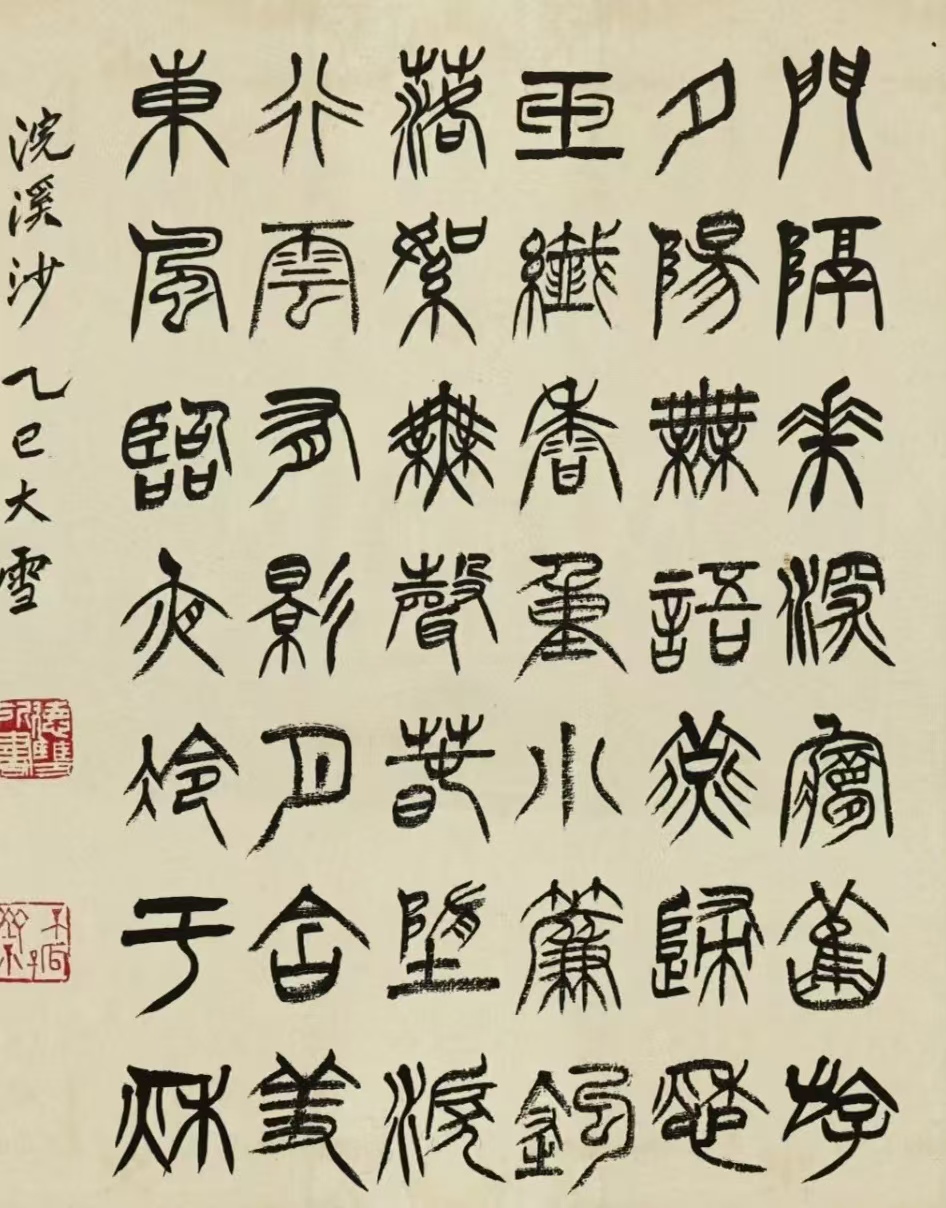 門隔花深夢舊游
夕陽無語燕歸愁
玉纖香重小簾鉤
落絮無聲春墮淚
行雲有影月含羞
東風臨夜冷于秋
浣溪沙 乙巳大雪